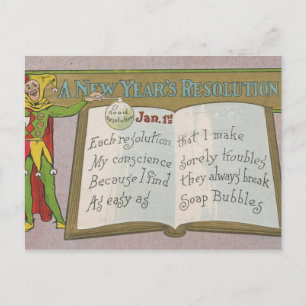 A NEW YEAR'S RESOLUTION
Good
Resolution
Jan. 1st
Each resolution that I make
My conscience sorely troubles
Because I find they always break
As easy as Soap Bubbles